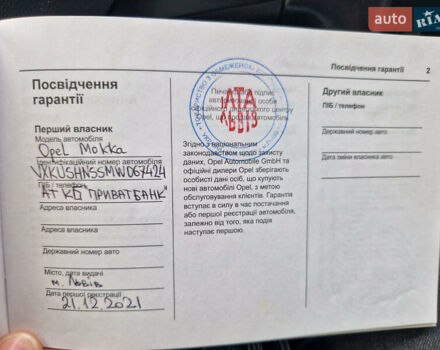 auto RIA
Посвідчення гарантії 2
Посвідчення
гарантії
Перший власник
Модель автомобіля
Opel Mokka
Ідентифікаційний номер автомобіля
VXKUSHNSSMW067424
ПІБ / телефон
АТ КБ ПРИВАТБАНК"
Адреса власника
Адреса власника
Державний номер авто
Місто, дата видачі
м. Львів
Дата першої реєстрації
21.12.2021
підпис
особи
офіційного дилерського центру
Opel,
АТА
АВТО
Згідно з національним
законодавством щодо захисту
даних, Opel Automobile GmbH та
офіційні дилери Opel зберігають
особисті дані осіб, що купують
нові автомобілі Opel, з метою
обслуговування клієнтів. Гарантія
вступає в силу в час постачання
або першої реєстрації автомобіля,
залежно від того, яка подія
наступає першою.
Другий власник
ПІБ / телефон
Державний номер авто
Дата зміни власника авто